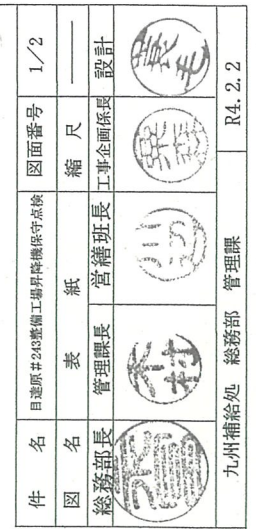 件名 目達原#243整備工場昇降機保守点検 図面番号 1/2
図名 表紙 縮尺 ——
総務部長 管理課長 営繕班長 工事企画係長 設計
木村 長毛
九州補給処 総務部 管理課 R4.2.2